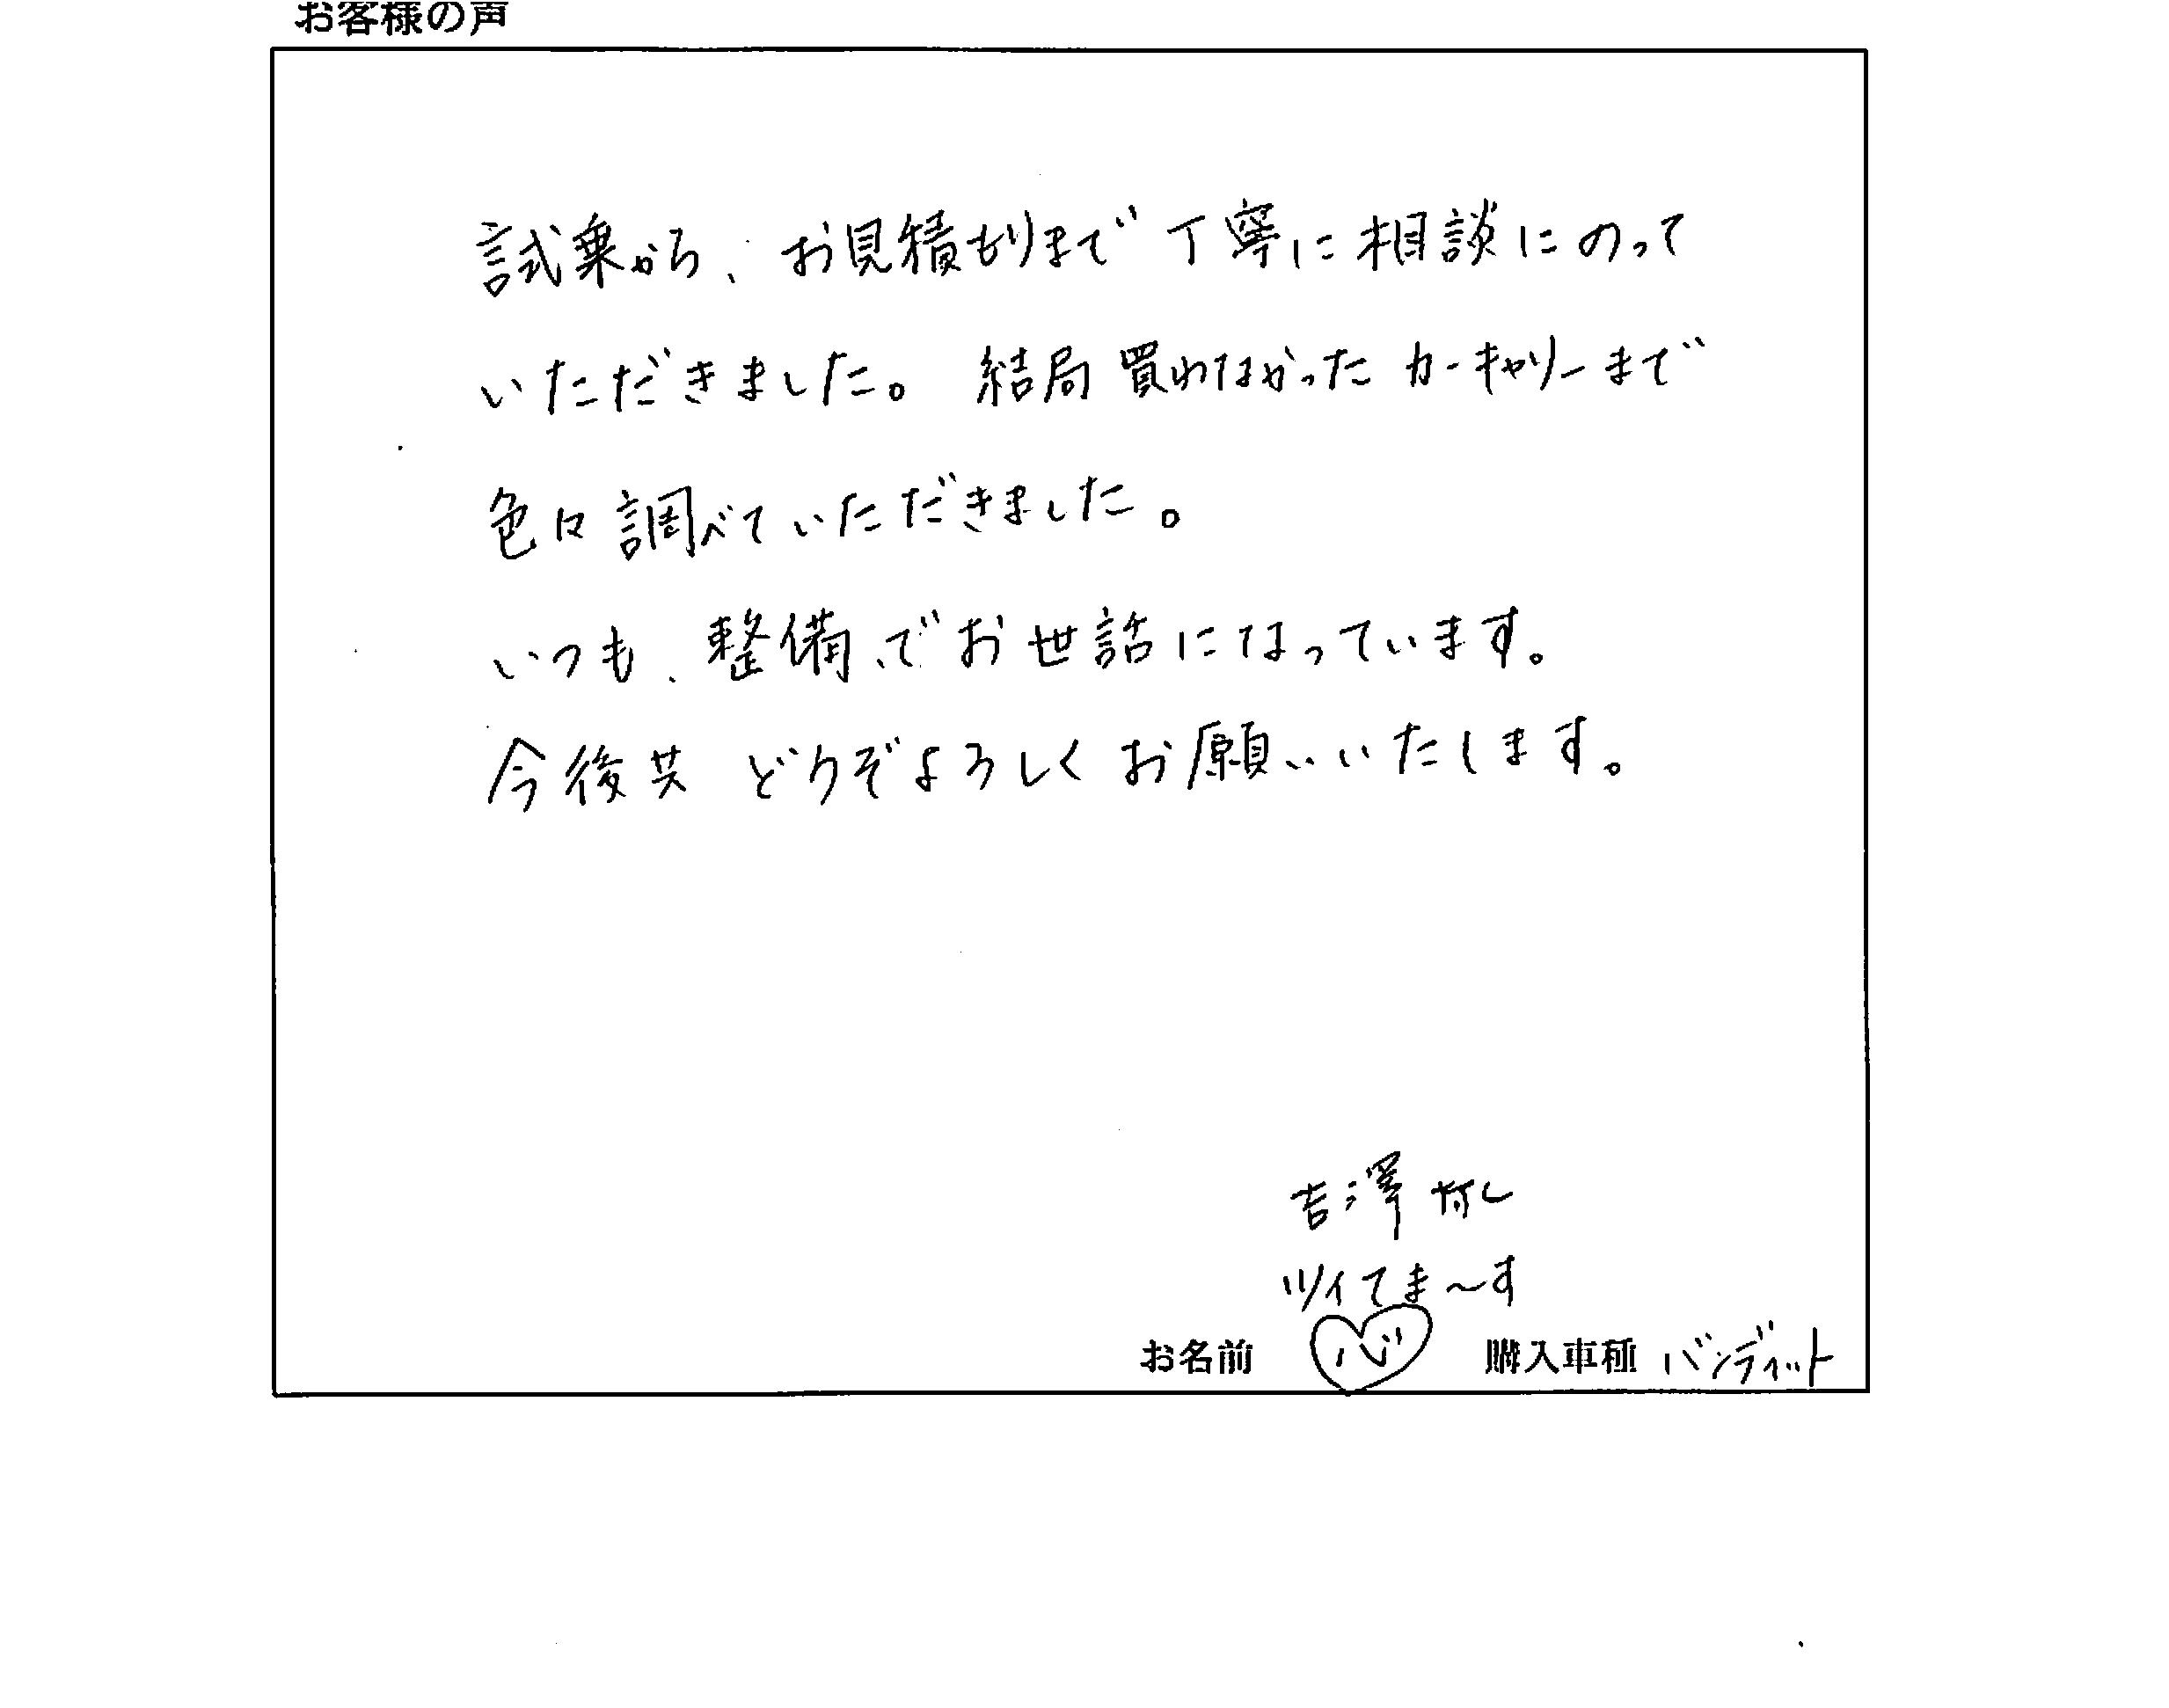 お客様の声
試乗から、お見積もりまで丁寧に相談にのって
いただきました。結局買わなかったカーキャリーまで
色々調べていただきました。
いつも、整備でお世話になっています。
今後共 どうぞよろしくお願いいたします。
吉澤
ツイてま〜す
お名前 心 購入車種 バンディット